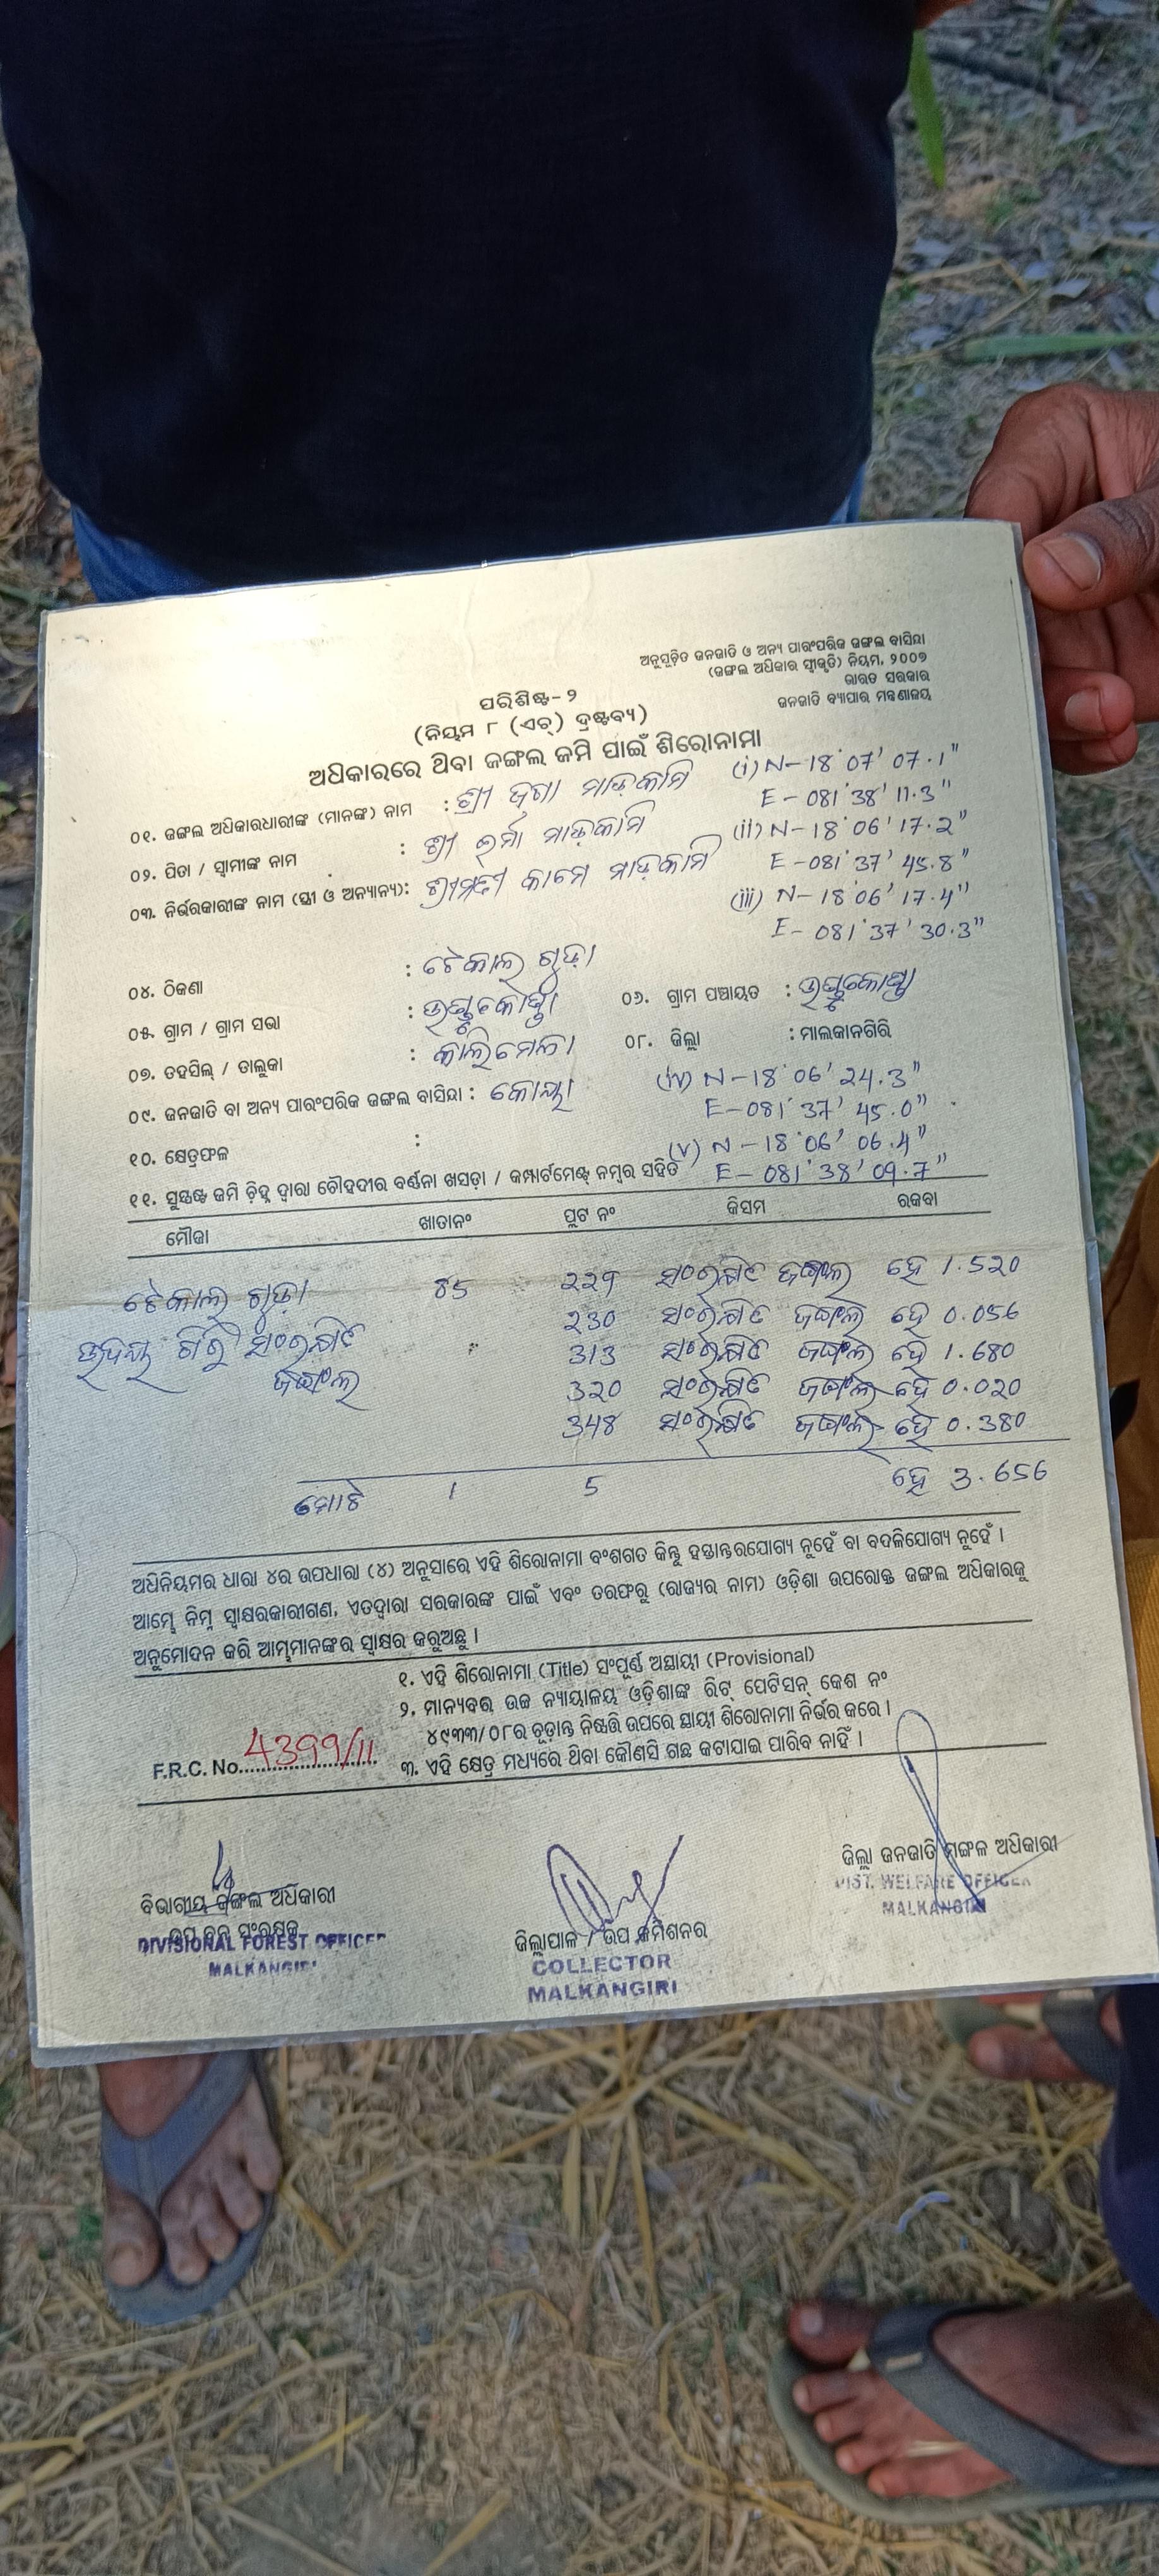 ଅନୁସୂଚିତ ଜନଜାତି ଓ ଅନ୍ୟ ପାରଂପରିକ ଜଙ୍ଗଲ ବାସିନ୍ଦା
(ଜଙ୍ଗଲ ଅଧିକାର ସ୍ୱୀକୃତି) ନିୟମ, ୨୦୦୭
ଭାରତ ସରକାର
ଜନଜାତି ବ୍ୟାପାର ମନ୍ତ୍ରଣାଳୟ
ପରିଶିଷ୍ଟ- ୨
(ନିୟମ ୮ (ଏଚ୍) ଦ୍ରଷ୍ଟବ୍ୟ)
ଅଧିକାରରେ ଥିବା ଜଙ୍ଗଲ ଜମି ପାଇଁ ଶିରୋନାମା
୦୧. ଜଙ୍ଗଲ ଅଧିକାରଧାରୀଙ୍କ (ମାନଙ୍କ) ନାମ : ଶ୍ରୀ ଦୁଗା ମାଡ଼କାମି (i) N-18°07'07.1"
E-081°38'11.3"
୦୨. ପିତା / ସ୍ୱାମୀଙ୍କ ନାମ : ଶ୍ରୀ ଇର୍ମା ମାଡ଼କାମି (ii) N-18°06'17.2"
E-081°37'45.8"
୦୩. ନିର୍ଭରକାରୀଙ୍କ ନାମ (ସ୍ତ୍ରୀ ଓ ଅନ୍ୟାନ୍ୟ): ଶ୍ରୀମତୀ କାମେ ମାଡ଼କାମି (iii) N-18°06'17.4"
E-081°37'30.3"
୦୪. ଠିକଣା : ଟେକାଲ ଗୁଡ଼ା
୦୫. ଗ୍ରାମ / ଗ୍ରାମ ସଭା : ୦୬. ଗ୍ରାମ ପଞ୍ଚାୟତ :
୦୭. ତହସିଲ୍ / ତାଲୁକା : କାଲିମେଲା ୦୮. ଜିଲ୍ଲା : ମାଲକାନଗିରି
୦୯. ଜନଜାତି ବା ଅନ୍ୟ ପାରଂପରିକ ଜଙ୍ଗଲ ବାସିନ୍ଦା : କୋୟା (iv) N-18°06'24.3"
E-081°37'45.0"
୧୦. କ୍ଷେତ୍ରଫଳ : (v) N-18°06'06.4"
E-081°38'09.7"
୧୧. ସୁସ୍ପଷ୍ଟ ଜମି ଚିହ୍ନ ଦ୍ୱାରା ଚୌହଦୀର ବର୍ଣ୍ଣନା ଖସଡ଼ା / କମ୍ପାର୍ଟମେଣ୍ଟ୍ ନମ୍ବର ସହିତ
ମୌଜା ଖାତାନଂ ପ୍ଲଟ ନଂ କିସମ ରକବା
ଟେକାଲ ଗୁଡ଼ା 85 229 ସଂରକ୍ଷିତ ଜଙ୍ଗଲ ହେ 1.520
ଉଦୟ ଗିରି ସଂରକ୍ଷିତ 230 ସଂରକ୍ଷିତ ଜଙ୍ଗଲ ହେ 0.056
ଜଙ୍ଗଲ " 313 ସଂରକ୍ଷିତ ଜଙ୍ଗଲ ହେ 1.680
320 ସଂରକ୍ଷିତ ଜଙ୍ଗଲ ହେ 0.020
348 ସଂରକ୍ଷିତ ଜଙ୍ଗଲ ହେ 0.380
ମୋଟ 1 5 ହେ 3.656
ଅଧିନିୟମର ଧାରା ୪ର ଉପଧାରା (୪) ଅନୁସାରେ ଏହି ଶିରୋନାମା ବଂଶଗତ କିନ୍ତୁ ହସ୍ତାନ୍ତରଯୋଗ୍ୟ ନୁହେଁ ବା ବଦଳିଯୋଗ୍ୟ ନୁହେଁ ।
ଆମ୍ଭେ ନିମ୍ନ ସ୍ୱାକ୍ଷରକାରୀଗଣ, ଏତଦ୍ଵାରା ସରକାରଙ୍କ ପାଇଁ ଏବଂ ତରଫରୁ (ରାଜ୍ୟର ନାମ) ଓଡ଼ିଶା ଉପରୋକ୍ତ ଜଙ୍ଗଲ ଅଧିକାରକୁ
ଅନୁମୋଦନ କରି ଆମ୍ଭମାନଙ୍କର ସ୍ୱାକ୍ଷର କରୁଅଛୁ ।
୧. ଏହି ଶିରୋନାମା (Title) ସଂପୂର୍ଣ୍ଣ ଅସ୍ଥାୟୀ (Provisional)
୨. ମାନ୍ୟବର ଉଚ୍ଚ ନ୍ୟାୟାଳୟ ଓଡ଼ିଶାଙ୍କ ରିଟ୍ ପେଟିସନ୍ କେଶ ନଂ
୪୯୩୩/୦୮ର ଚୂଡ଼ାନ୍ତ ନିଷ୍ପତ୍ତି ଉପରେ ସ୍ଥାୟୀ ଶିରୋନାମା ନିର୍ଭର କରେ ।
F.R.C. No. 4399/11 ୩. ଏହି କ୍ଷେତ୍ର ମଧ୍ୟରେ ଥିବା କୌଣସି ଗଛ କଟାଯାଇ ପାରିବ ନାହିଁ ।
ବିଭାଗୀୟ ଜଙ୍ଗଲ ଅଧିକାରୀ
ଉପ ବନ ସଂରକ୍ଷକ
DIVISIONAL FOREST OFFICER
MALKANGIRI
ଜିଲ୍ଲାପାଳ / ଉପ କମିଶନର
COLLECTOR
MALKANGIRI
ଜିଲ୍ଲା ଜନଜାତି ମଙ୍ଗଳ ଅଧିକାରୀ
DIST. WELFARE OFFICER
MALKANGIRI